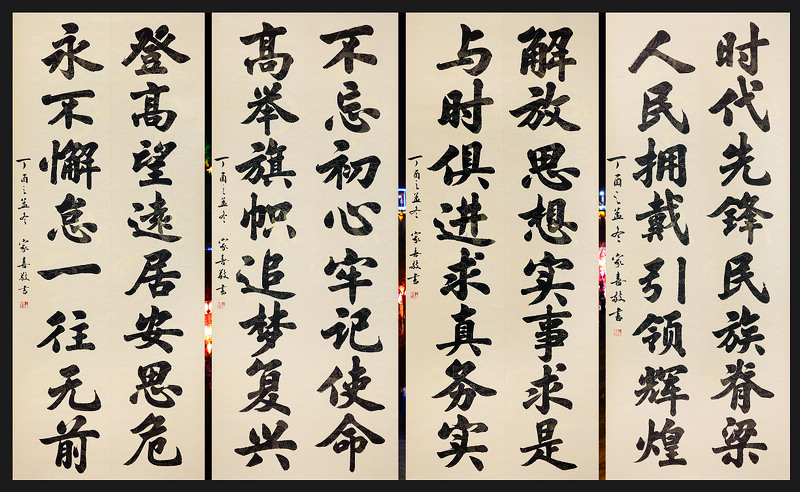 时代先锋民族脊梁
人民拥戴引领辉煌
丁酉之孟冬 家喜敬书
解放思想实事求是
与时俱进求真务实
丁酉之孟冬 家喜敬书
不忘初心牢记使命
高举旗帜追梦复兴
丁酉之孟冬 家喜敬书
登高望遠居安思危
永不懈怠一往无前
丁酉之孟冬 家喜敬书